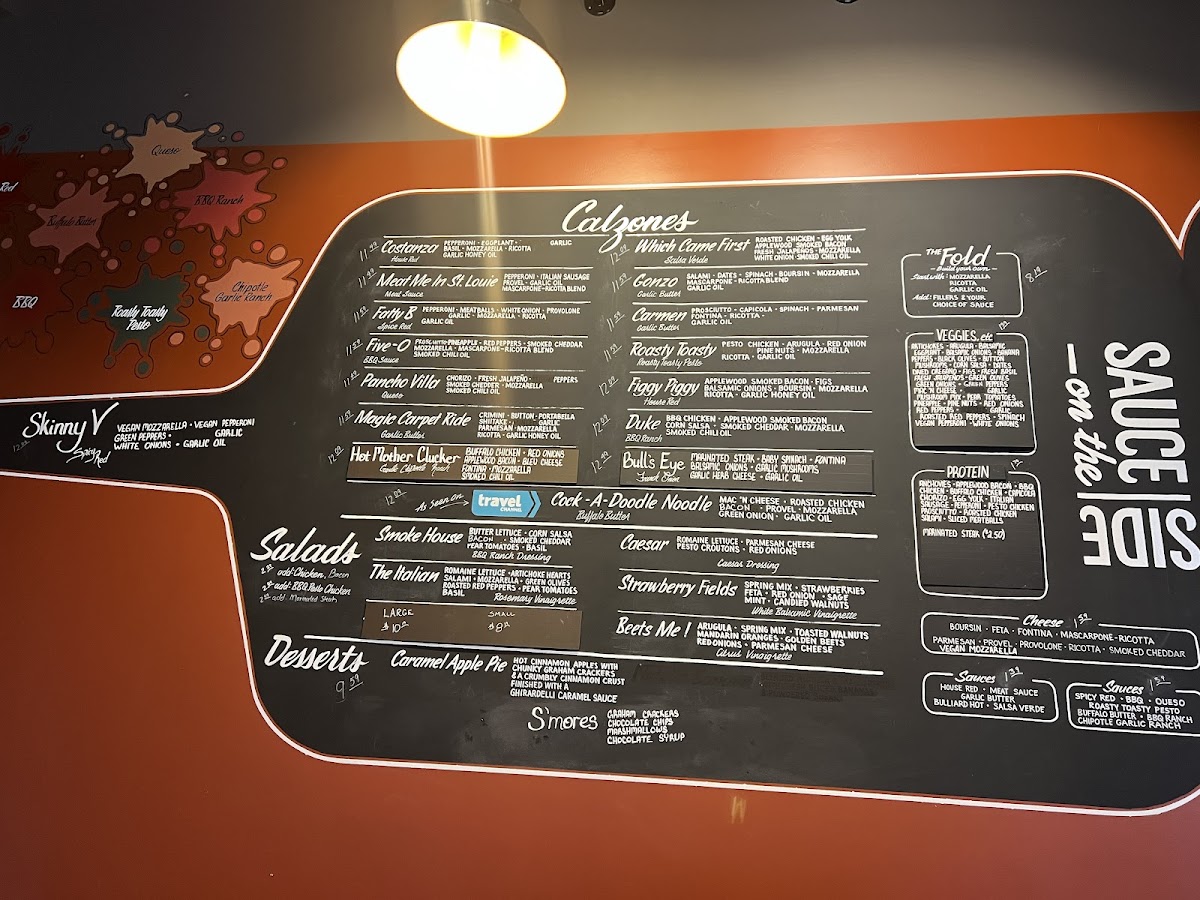 Queso
Red
BBQ Ranch
Buffalo Butter
Chipotle
Garlic Ranch
BBQ
Toasty Toasty
Pesto
Skinny V
Spicy Red
VEGAN MOZZARELLA · VEGAN PEPPERONI
GREEN PEPPERS · GARLIC
WHITE ONIONS · GARLIC OIL
Calzones
Costanza
House Red
PEPPERONI · EGGPLANT · GARLIC
BASIL · MOZZARELLA · RICOTTA
GARLIC HONEY OIL
Meat Me In St. Louie
Meat Sauce
PEPPERONI · ITALIAN SAUSAGE
PROVEL · GARLIC OIL
MASCARPONE-RICOTTA BLEND
Fatty B
Spicy Red
PEPPERONI · MEATBALLS · WHITE ONION · PROVOLONE
GARLIC · MOZZARELLA · RICOTTA
GARLIC OIL
Five-O
BBQ Sauce
PROSCIUTTO · PINEAPPLE · RED PEPPERS · SMOKED CHEDDAR
MOZZARELLA · MASCARPONE-RICOTTA BLEND
SMOKED CHILI OIL
Pancho Villa
Queso
CHORIZO · FRESH JALAPEÑO · PEPPERS
SMOKED CHEDDER · MOZZARELLA
SMOKED CHILI OIL
Magic Carpet Ride
Garlic Butter
CRIMINI · BUTTON · PORTABELLA
SHIITAKE · GARLIC
PARMESAN · MOZZARELLA
RICOTTA · GARLIC HONEY OIL
Hot Mother Clucker
BUFFALO CHICKEN · RED ONIONS
APPLEWOOD BACON · BLEU CHEESE
FONTINA · MOZZARELLA
SMOKED CHILI OIL
Which Came First
Salsa Verde
ROASTED CHICKEN · EGG YOLK
APPLEWOOD SMOKED BACON
FRESH JALAPEÑO · MOZZARELLA
WHITE ONION · SMOKED CHILI OIL
Gonzo
Garlic Butter
SALAMI · DATES · SPINACH · BOURSIN · MOZZARELLA
MASCARPONE · RICOTTA BLEND
GARLIC OIL
Carmen
Garlic Butter
PROSCIUTTO · CAPICOLA · SPINACH · PARMESAN
FONTINA · RICOTTA ·
GARLIC OIL
Roasty Toasty
Roasty Toasty Pesto
PESTO CHICKEN · ARUGULA · RED ONION
PINE NUTS · MOZZARELLA
RICOTTA · GARLIC OIL
Figgy Piggy
House Red
APPLEWOOD SMOKED BACON · FIGS
BALSAMIC ONIONS · BOURSIN · MOZZARELLA
RICOTTA · GARLIC HONEY OIL
Duke
BBQ Ranch
BBQ CHICKEN · APPLEWOOD SMOKED BACON
CORN SALSA · SMOKED CHEDDAR · MOZZARELLA
SMOKED CHILI OIL
Bull's Eye
MARINATED STEAK · BABY SPINACH · FONTINA
BALSAMIC ONIONS · GARLIC MUSHROOMS
GARLIC HERB CHEESE · GARLIC OIL
12.99
As seen on travel CHANNEL
Cock-A-Doodle Noodle
Buffalo Butter
MAC 'N CHEESE · ROASTED CHICKEN
BACON · PROVEL · MOZZARELLA
GREEN ONION · GARLIC OIL
Salads
add Chicken, Bacon
add BBQ/Pesto Chicken
add Marinated Steak
Smoke House
BUTTER LETTUCE · CORN SALSA
BACON · SMOKED CHEDDAR
PEAR TOMATOES · BASIL
BBQ Ranch Dressing
The Italian
ROMAINE LETTUCE · ARTICHOKE HEARTS
SALAMI · MOZZARELLA · GREEN OLIVES
ROASTED RED PEPPERS · PEAR TOMATOES
BASIL
Rosemary Vinaigrette
LARGE SMALL
Caesar
ROMAINE LETTUCE · PARMESAN CHEESE
PESTO CROUTONS · RED ONIONS
Caesar Dressing
Strawberry Fields
SPRING MIX · STRAWBERRIES
FETA · RED ONION · SAGE
MINT · CANDIED WALNUTS
White Balsamic Vinaigrette
Beets Me !
ARUGULA · SPRING MIX · TOASTED WALNUTS
MANDARIN ORANGES · GOLDEN BEETS
RED ONIONS · PARMESAN CHEESE
Citrus Vinaigrette
Desserts
9.59
Caramel Apple Pie
HOT CINNAMON APPLES WITH
CHUNKY GRAHAM CRACKERS
& A CRUMBLY CINNAMON CRUST
FINISHED WITH A
GHIRARDELLI CARAMEL SAUCE
S'mores
GRAHAM CRACKERS
CHOCOLATE CHIPS
MARSHMALLOWS
CHOCOLATE SYRUP
THE Fold
Build your own
Start with: MOZZARELLA
RICOTTA
GARLIC OIL
Add: FILLERS & YOUR
CHOICE OF SAUCE
VEGGIES, etc
ARTICHOKES · ARUGULA · BALSAMIC
EGGPLANT · BALSAMIC ONIONS · BANANA
PEPPERS · BLACK OLIVES · BUTTON
MUSHROOMS · CORN SALSA · DATES
DRIED OREGANO · FIGS · FRESH BASIL
FRESH JALAPENOS · GREEN OLIVES
GREEN ONIONS · GREEN PEPPERS
MAC 'N CHEESE · GARLIC
MUSHROOM MIX · PEAR TOMATOES
PINEAPPLE · PINE NUTS · RED ONIONS
RED PEPPERS · GARLIC
ROASTED RED PEPPERS · SPINACH
VEGAN PEPPERONI · WHITE ONIONS
PROTEIN
ANCHOVIES · APPLEWOOD BACON · BBQ
CHICKEN · BUFFALO CHICKEN · CAPICOLA
CHORIZO · EGG YOLK · ITALIAN
SAUSAGE · PEPPERONI · PESTO CHICKEN
PROSCIUTTO · ROASTED CHICKEN
SALAMI · SLICED MEATBALLS
MARINATED STEAK ($2.50)
Cheese
BOURSIN · FETA · FONTINA · MASCARPONE-RICOTTA
PARMESAN · PROVEL · PROVOLONE · RICOTTA · SMOKED CHEDDAR
VEGAN MOZZARELLA
Sauces
HOUSE RED · MEAT SAUCE
GARLIC BUTTER
BULLIARD HOT · SALSA VERDE
Sauces
SPICY RED · BBQ · QUESO
ROASTY TOASTY PESTO
BUFFALO BUTTER · BBQ RANCH
CHIPOTLE GARLIC RANCH
SAUCE
on the
SIDE